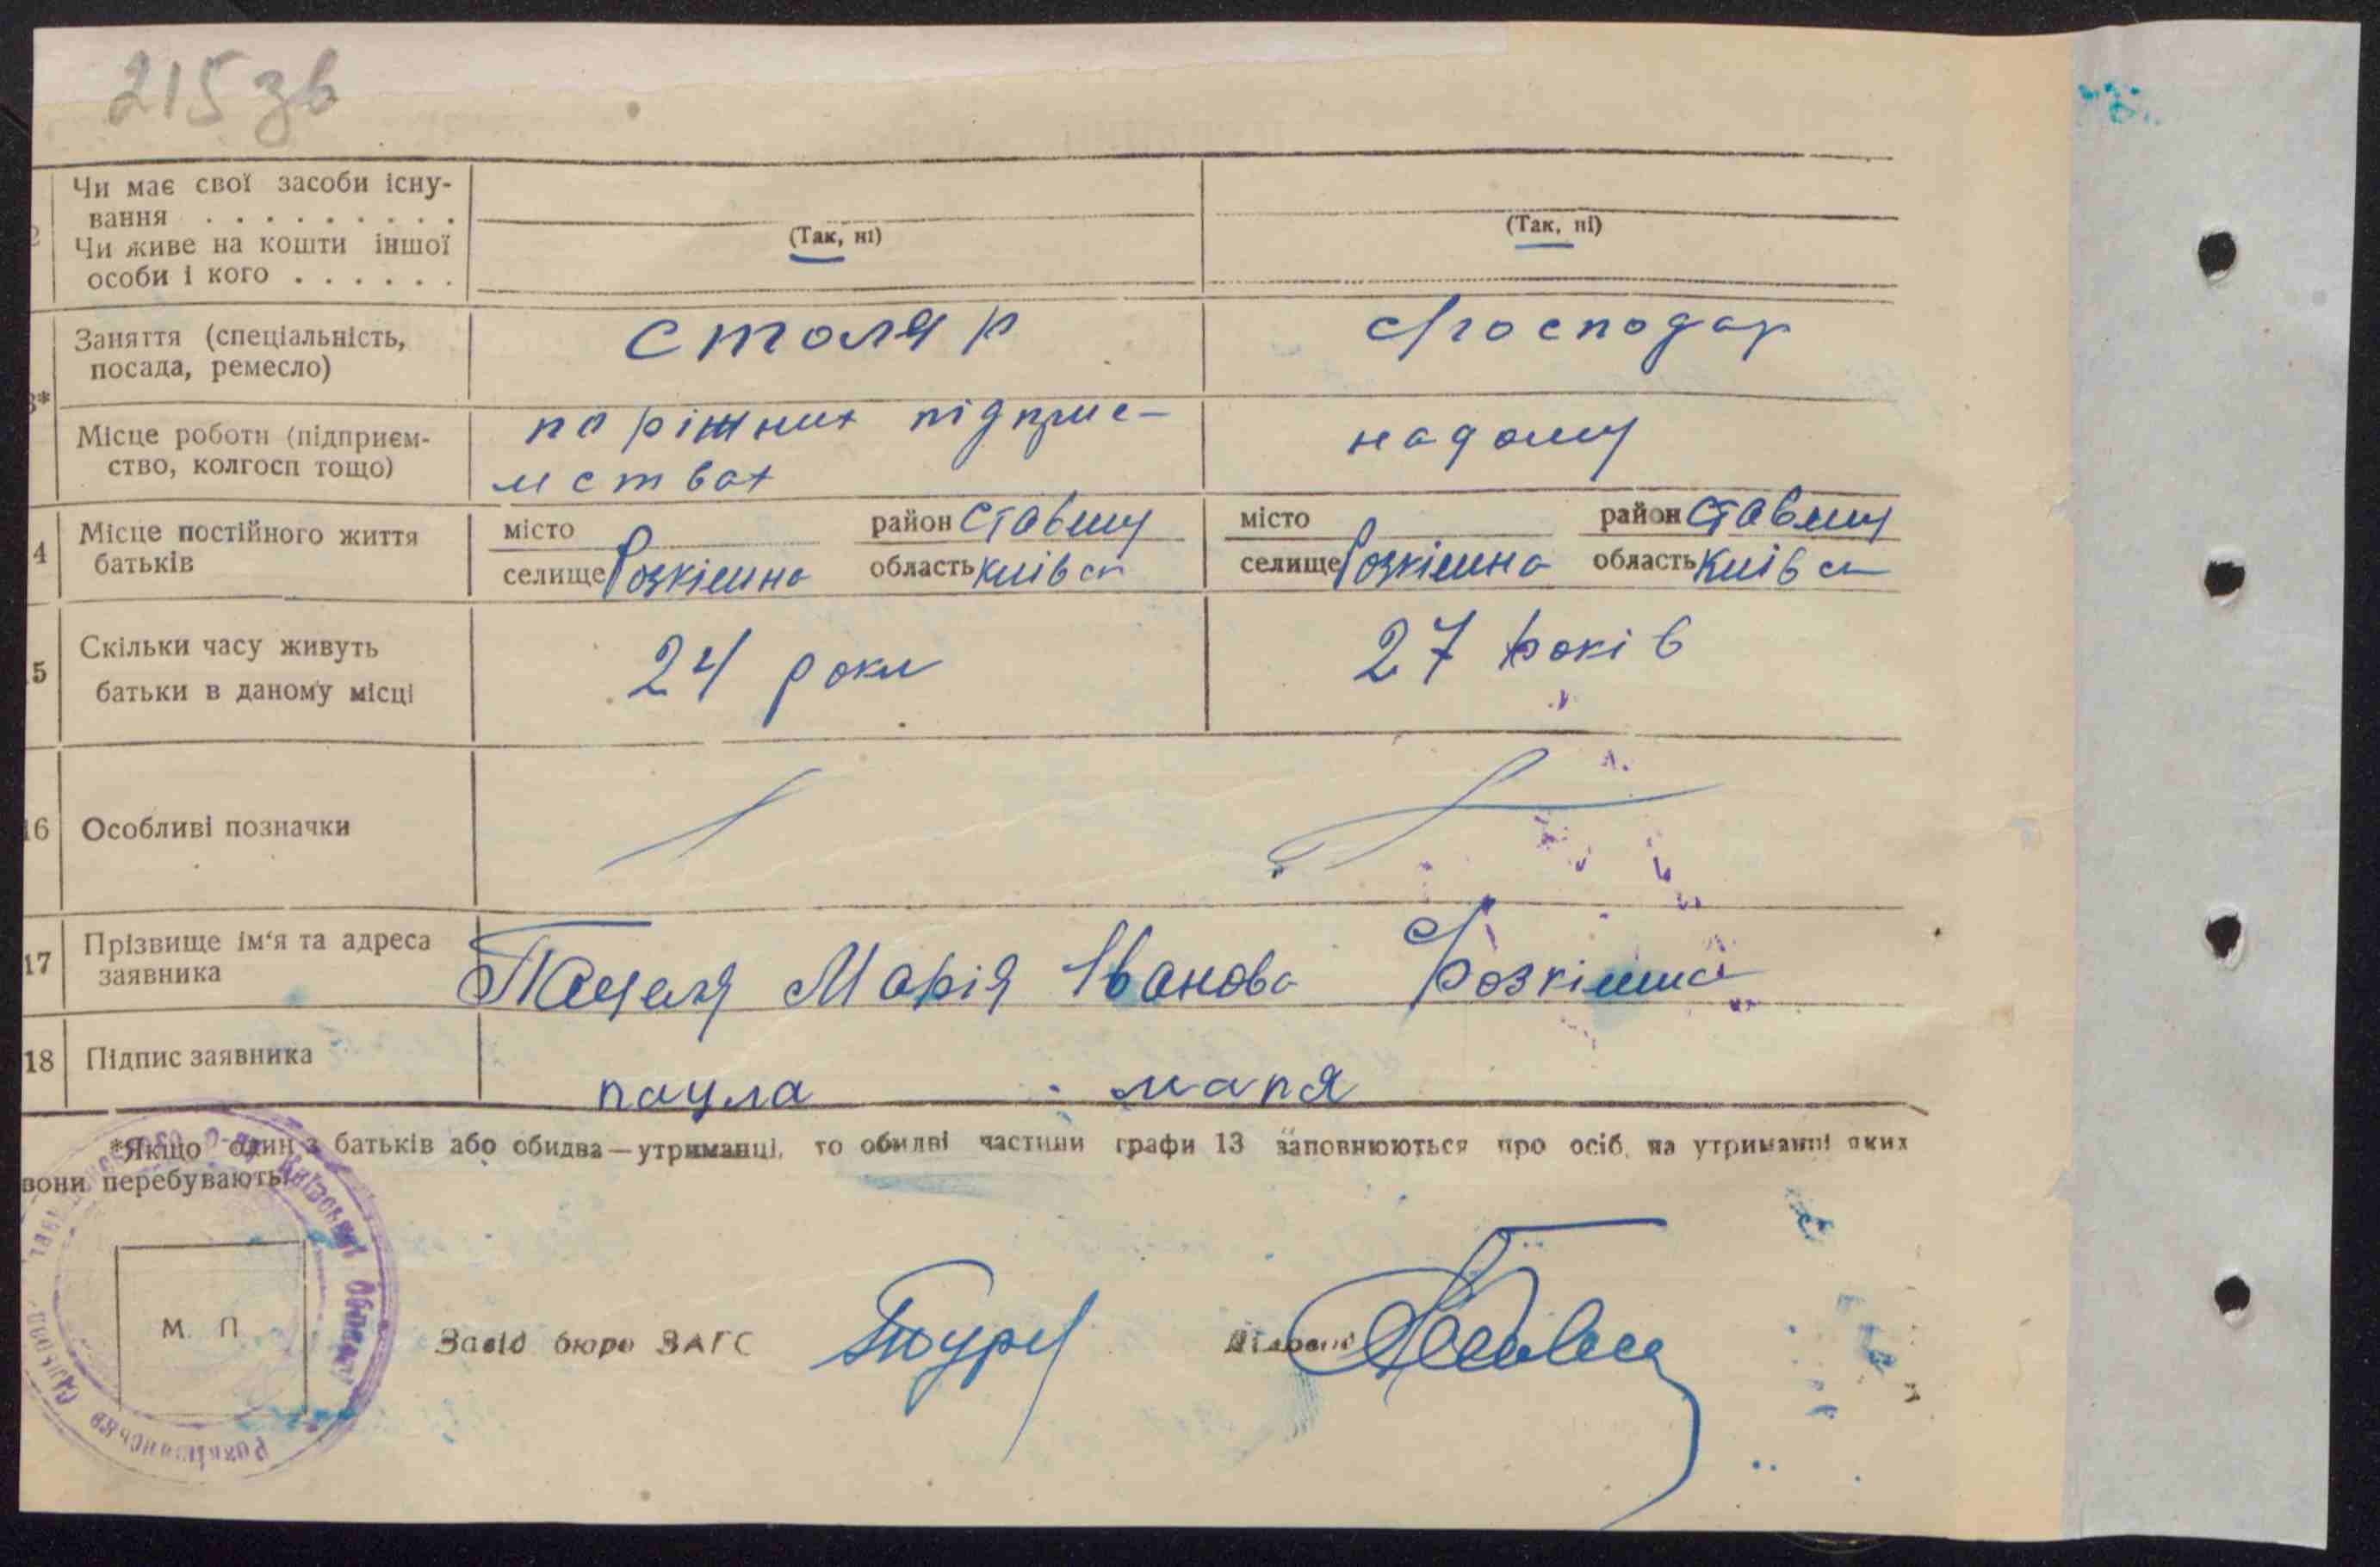 215 зв
Чи має свої засоби існу-
вання . . . . . . . . .
Чи живе на кошти іншої
особи і кого . . . . . .
(Так, ні)
(Так, ні)
3*
Заняття (спеціальність,
посада, ремесло)
столяр
господар
Місце роботи (підприєм-
ство, колгосп тощо)
по ріжних підприє-
мствах
надому
4
Місце постійного життя
батьків
місто район Ставищ
селище Розкішна область Київск
місто район Ставищ
селище Розкішна область Київск
5
Скільки часу живуть
батьки в даному місці
24 роки
27 років
16
Особливі позначки
17
Прізвище ім'я та адреса
заявника
Пацала Марія Іванова Розкішна
18
Підпис заявника
пацла мапя
*Якщо один з батьків або обидва—утриманці, то обидві частини графи 13 заповнюються про осіб, на утриманні яких
вони перебувають
М. П
Завід бюро ЗАГС
Київської Області
Розкішнянська